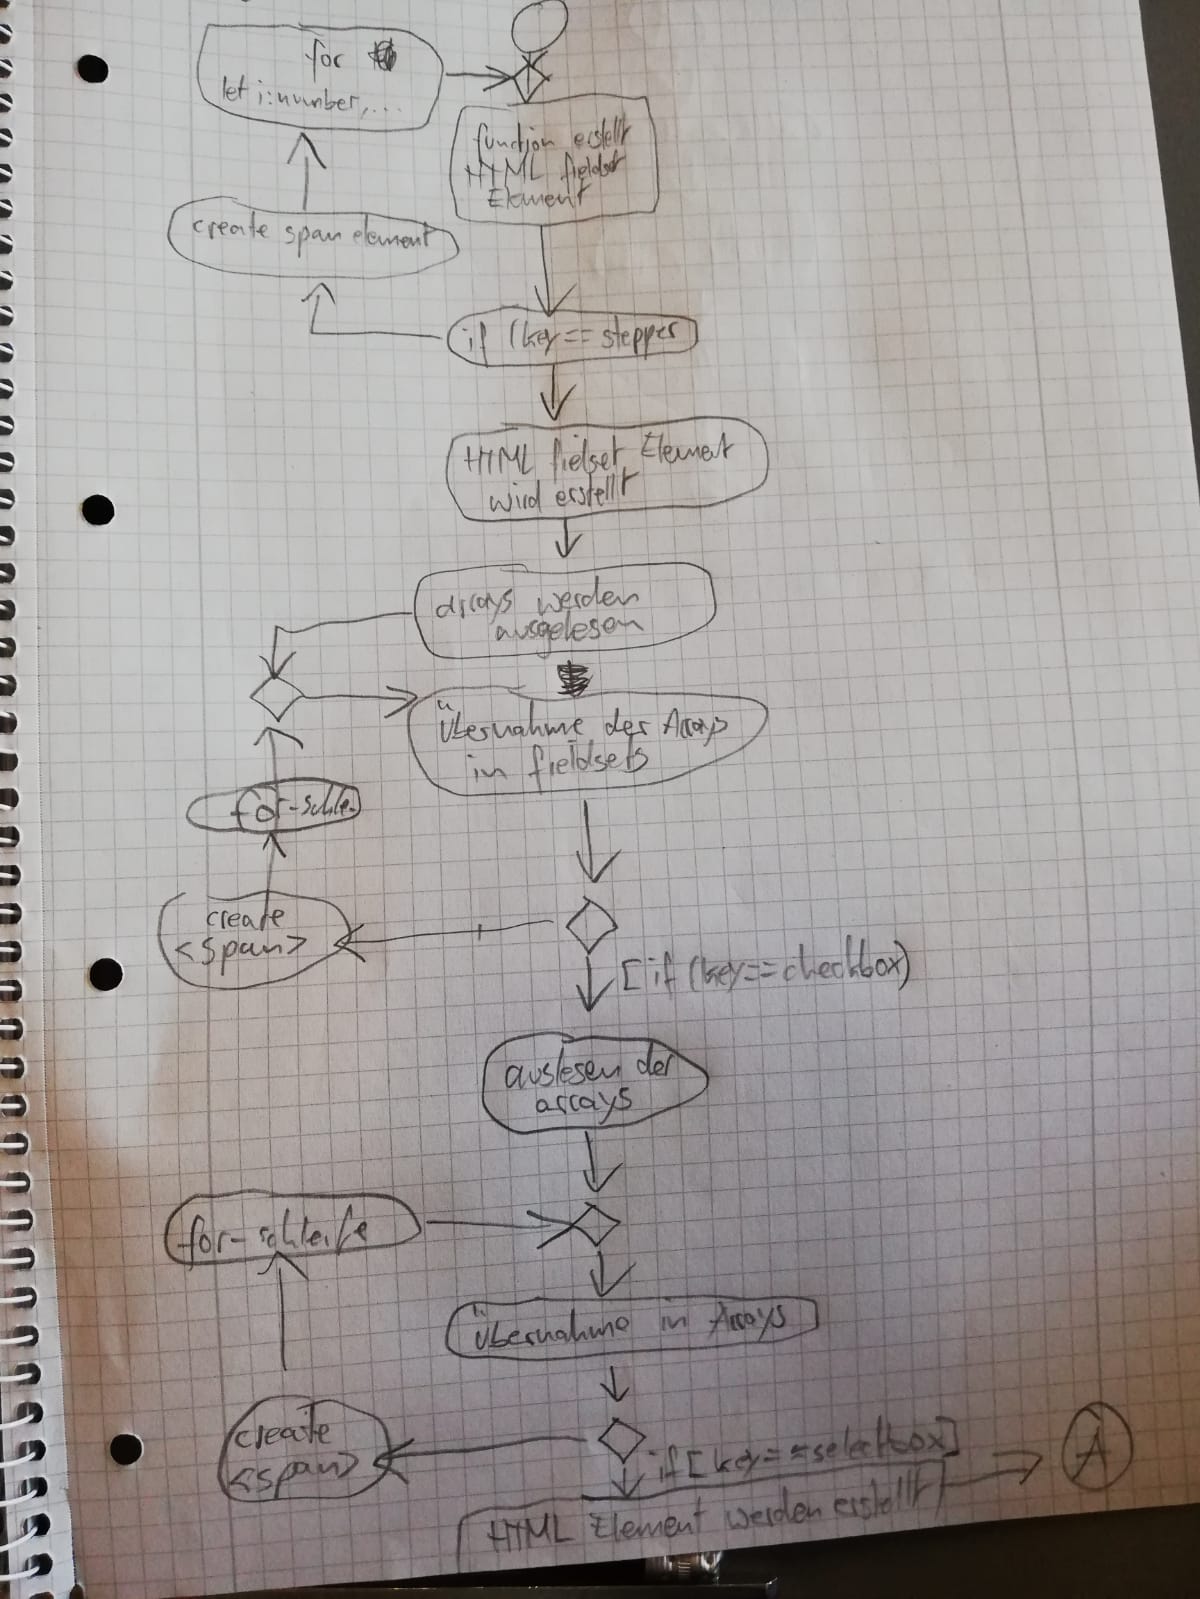 for
let i:number,...
function erstellt
HTML fieldset
Element
create span element
if (key == stepper
HTML fielset Element
wird erstellt
arrays werden
ausgelesen
Übernahme der Arrays
in fieldsets
for-schle.
create
<span>
[if (key==checkbox)
auslesen der
arrays
for-schleife
Übernahme in Arrays
create
<span>
if [key==selectbox]
A
HTML Element werden erstellt